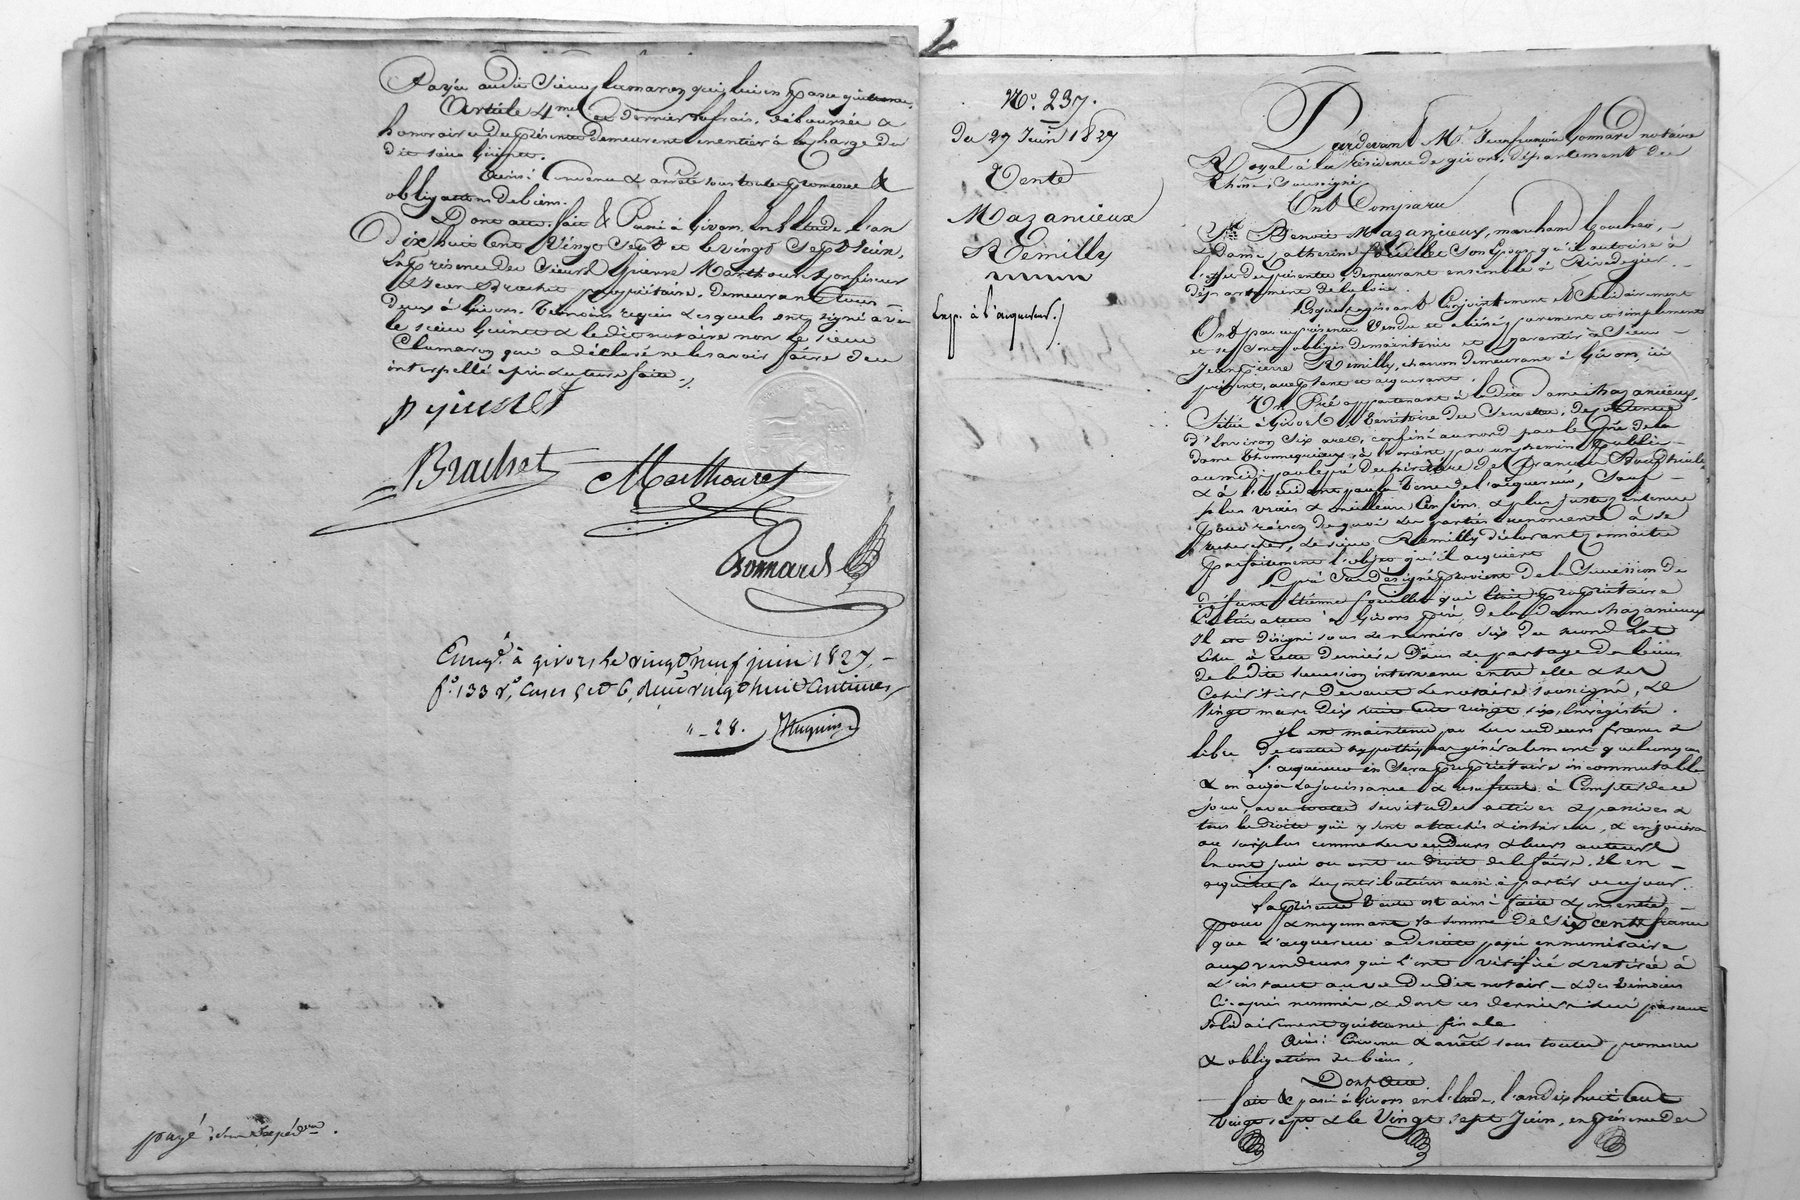 Payée au dit Sieur Chumarey qui lui en passe quittance.
Article 4me. Ces derniers frais, déboursés &
honoraires du présent demeurent en entier à la charge du
dit sieur Guinet.
Ainsi Convenu & arrêté sous toutes promesses &
obligations de biens.
Dont acte. fait & Passé à Givors en l'Etude, l'an
Dix huit Cent Vingt Sept et le vingt Sept Juin,
En présence des Sieurs Pierre Marthouret
& Jean Brachet propriétaire, demeurant tous
deux à Givors. Témoins requis & lesquels ont signé avec
le sieur Guinet & le dit notaire non le sieur
Chumarey qui a déclaré ne le savoir faire de ce
interpellé après lecture faite./.
Brachet
Marthouret
Bonnard
Enregé. à givors le vingt neuf juin 1827,
fo. 133 ro. cases 5 et 6, vingt huit Centimes
"-28.
payé
No. 237.
Du 27 Juin 1827
Vente
Mazancieux
à Remilly
Exp. à l'acquéreur./
Pardevant Me. Jean françois Bonnard notaire
Royal à la résidence de givors, département du
Rhône, soussigné
Ont Comparu
Sr. Benoit Mazancieux, marchand boucher, &
Dame Catherine fouillet Son Epouse qu'il autorise à
l'effet des présentes, demeurant ensemble à Rivedegier
département de la Loire.
Lesquels agissant Conjointement et Solidairement
Ont par ces présentes Vendu et aliéné purement et simplement
et se sont obligés de maintenir et garantir à Sieur
Jean pierre Remilly, charron demeurant à Givors, ici
présent, acceptant et acquérant.
Un Pré appartenant à la dite dame Mazancieux,
Situé à Givors, territoire de, de contenue
d'Environ Six ares, confiné au nord par le Pré de la
dame, à par un chemin public
au midi par le pré des héritiers de françois
& à l'occident par la terre de l'acquéreur, Sauf
plus vrais & meilleurs Confins, & plus juste contenue
pour raison de quoi les parties renoncent à se
rechercher, le sieur Remilly déclarant connaitre
parfaitement l'objet qu'il acquiert
Le pré Sus désigné provient de la Succession de
défunt Etienne fouillet qui était propriétaire
Cultivateur à Givors père de la dame Mazancieux
Il est désigné sous le numéro six du second Lot
échu à cette dernière Dans le partage des biens
de la dite succession intervenu entre elle & ses
Cohéritiers devant le notaire soussigné, Le
Vingt mars Dix huit cent vingt six, Enregistré.
Il est maintenu par les vendeurs franc &
libre de toutes hypothèques généralement quelconques
L'acquéreur en Sera propriétaire incommutable
& en aura la jouissance & usufruit à Compter de ce
jour, avec toutes servitudes actives & passives &
tous les droits qui y sont attachés & inhérens, & en jouira
au surplus comme les vendeurs & leurs auteurs
en ont joui ou ont eu droit de le faire. Il en
acquittera les contributions aussi à partir de ce jour.
La présente Vente est ainsi faite & consentie
pour & moyennant la somme de Six cents francs
que l'acquéreur a de suite payée en numéraire
aux vendeurs qui l'ont vérifiée & retirée à
l'instant au vu du dit notaire & des témoins
Ci-après nommés, & dont ces derniers lui passent
solidairement quittance finale
Ainsi Convenu & arrêté sous toutes promesses
& obligations de biens.
Dont Acte.
fait & passé à Givors en l'Etude, l'an dix huit cent
Vingt sept & le Vingt sept Juin, en présence des